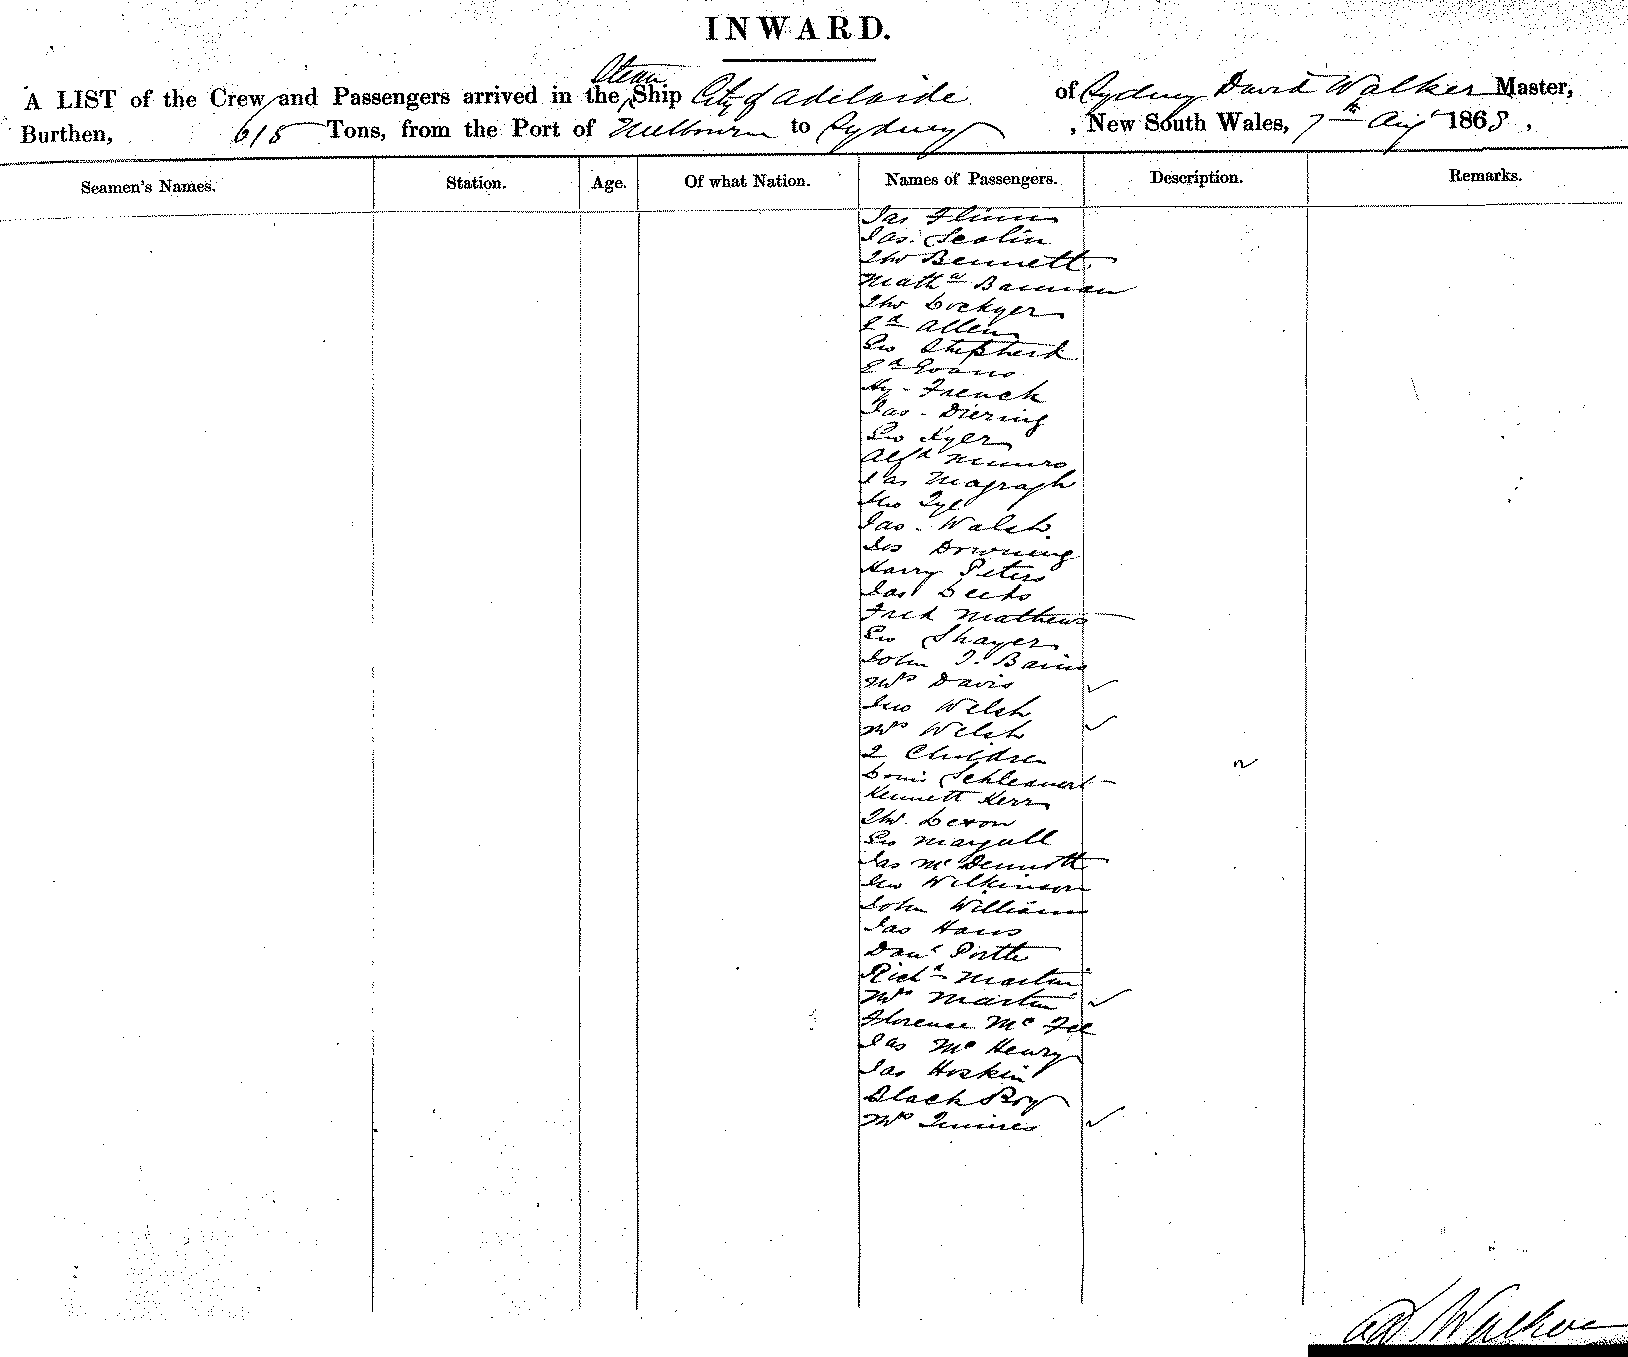 INWARD.
Steam
A LIST of the Crew and Passengers arrived in the Ship City of Adelaide of Sydney David Walker Master,
Burthen, 618 Tons, from the Port of Melbourn to Sydney, New South Wales, 7th Aug 1868,
Seamen's Names. Station. Age. Of what Nation. Names of Passengers. Description. Remarks.
Jas Flinn
Jas. Scolin
Tho Bennett
Math Bannan
Tho Lockyer
Ed Allen
Geo Shepherd
Ed Evans
Hy - French
Jas - Diering
Geo Kyer
Alfd Munro
Jas Magragh
Jno
Jas - Walsh
Jos Downing
Harry Peters
Jas Leets
Fred Mathews
Geo Shayer
John T. Bains
Mrs Davis
Jno Welsh
Mrs Welsh
2 Children
Louis
Kennett Kerr
Tho. Lexon
Geo Mayall
Jas McDermott
Jno Wilkinson
John Williams
Jas Haus
Danl Portle
Richd Martin
Mrs Martin
Florence McFee
Jas McHenry
Jas Hoskin
Black Boy
Mrs
Walker